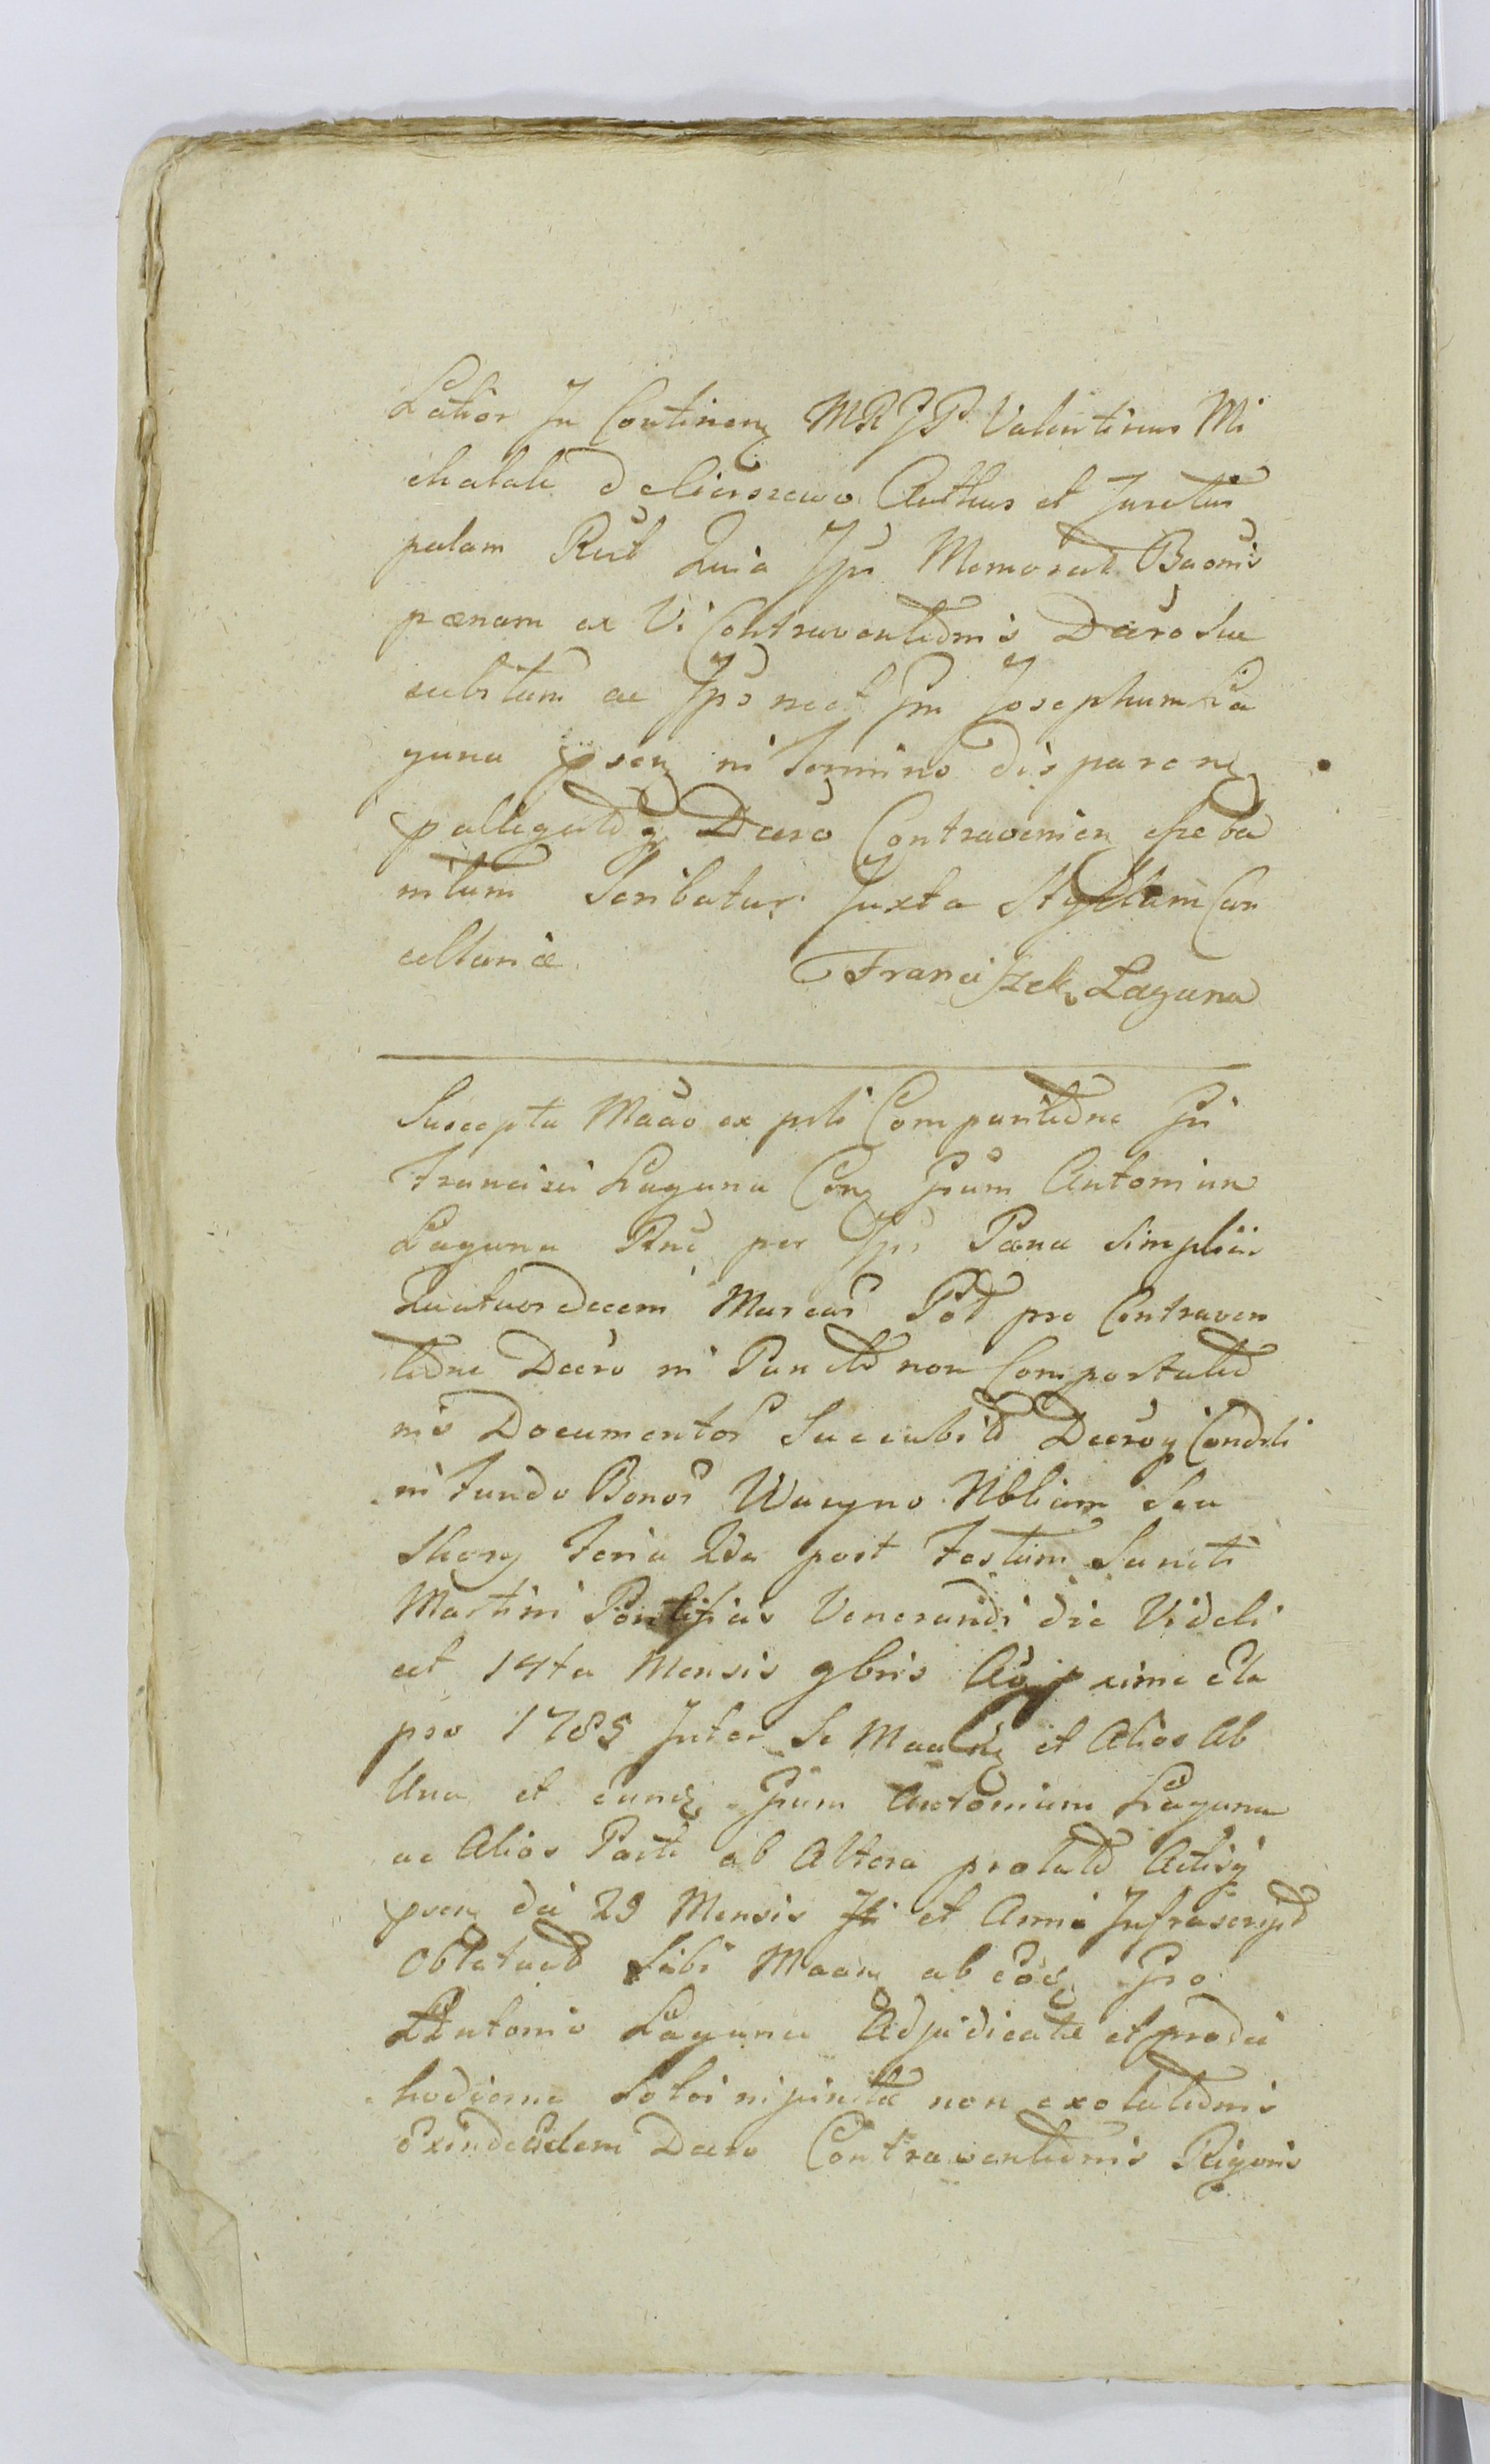 Lator In Continen MRJP Valentinus Mi
chalak d Cierszewo Authus et Juratus
palam Rect Quia Jpr Memorat Baonis
pœnam ex Vi Contraventionis Decro sue
subitum ac Jps nect Jm Josephum La
guna psen in Termino disparen
pallegato Decro Contravenien esse ba
nitum Scribatur Juxta Styllum Can
cellariæ
Franciszek Laguna
Suscepta Maao ex psli Comparitione Jsi
Francisci Laguna Con Jsum Antonium
Laguna Rne per Jps Pæna simplici
Quatuordecem Marcar Pol pro Contraven
tione Decro in Puncto non Comportatio
nis Documentor Succubit Decroq Condsli
in fundo Bonor Wacyno Nbliam Seu
Skory Feria 2da post Festum Sancti
Martini Pontificis Venerandi die Videli
cet 14ta Mensis 9bris Ao pxime ela
pso 1785 Inter Se Maan et Alios Ab
Una et eund Jsum Antonium Laguna
ac Alios Parte ab Altera prolato Actisq
psen die 29 Mensis et Anni Infrascript
Oblatuat Sibi Maan ab eod Jso
Antonio Laguna Adjudicatæ et pro die
hodierna Solvi injunctæ non exolutionis
Exinde Eidem Decro Contraventionis Rigoris